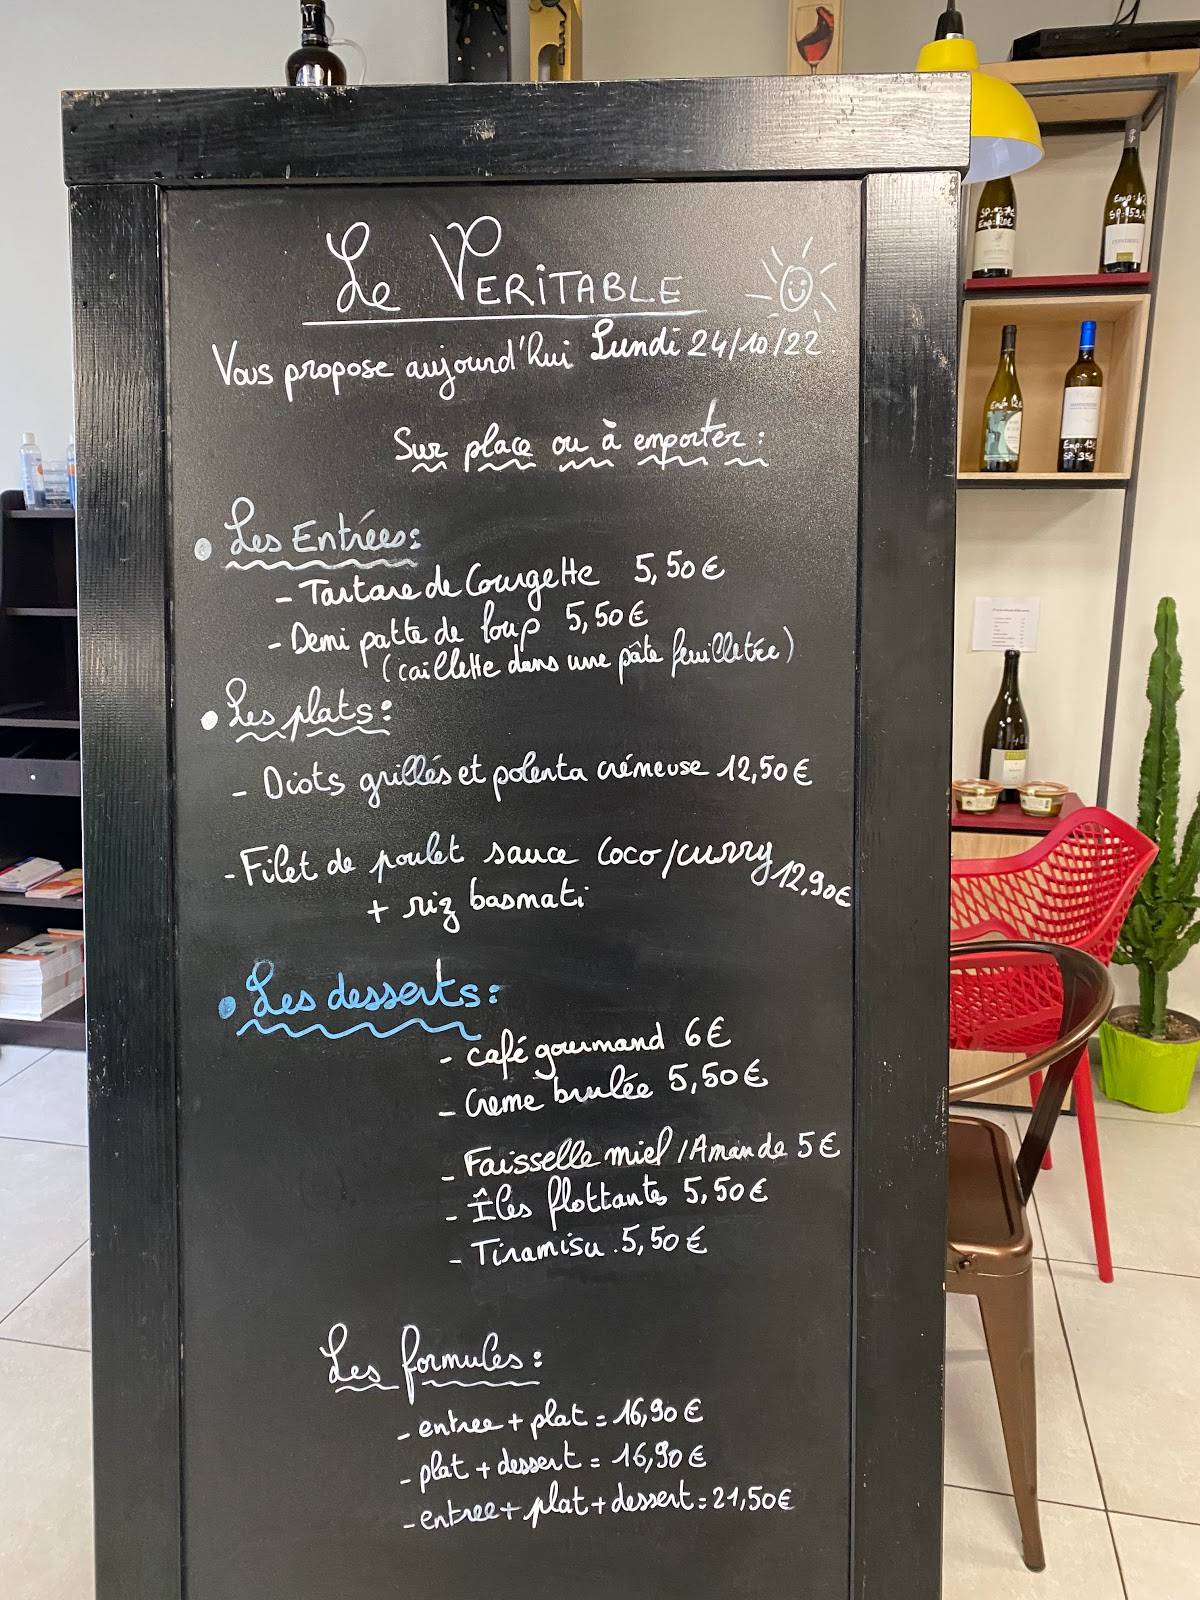 Le VERITABLE
Vous propose aujourd'hui Lundi 24/10/22
Sur place ou à emporter :
• Les Entrées :
- Tartare de Courgette 5,50 €
- Demi patte de loup 5,50 €
(caillette dans une pâte feuilletée)
• Les plats :
- Diots grillés et polenta crémeuse 12,50 €
- Filet de poulet sauce coco/curry 12,90 €
+ riz basmati
• Les desserts :
- café gourmand 6 €
- Creme brulée 5,50 €
- Faisselle miel / Amande 5 €
- Îles flottantes 5,50 €
- Tiramisu . 5,50 €
Les formules :
- entree + plat = 16,90 €
- plat + dessert = 16,90 €
- entree + plat + dessert = 21,50 €
Emp: 19€
SP: 35€